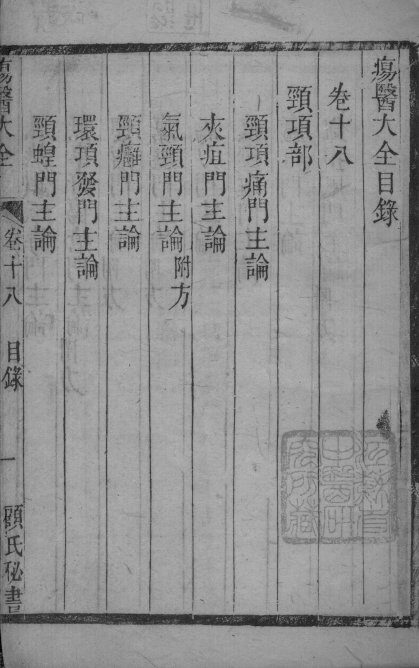 瘍醫大全目錄
卷十八
頸項部
頸項痛門主論
夾疽門主論
氣頸門主論附方
頸癰門主論
環項發門主論
頸蝗門主論
瘍醫大全 卷十八 目錄 一 顧氏秘書